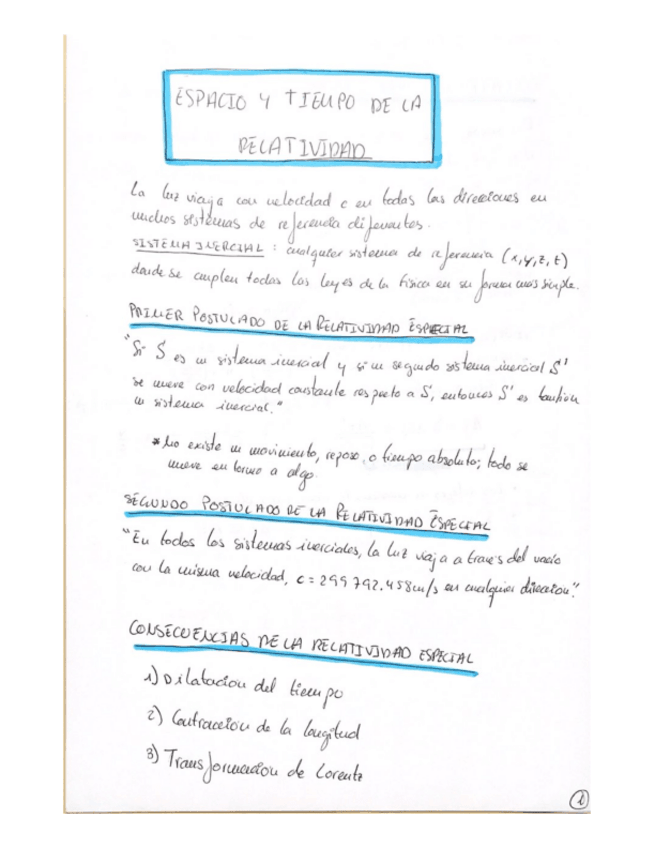 ESPACIO Y TIEMPO DE LA
RELATIVIDAD
La luz viaja con velocidad c en todas las direcciones en
muchos sistemas de referencia diferentes.
SISTEMA INERCIAL : cualquier sistema de referencia (x,y,z,t)
donde se cumplen todas las leyes de la física en su forma más simple.
PRIMER POSTULADO DE LA RELATIVIDAD ESPECIAL
"Si S es un sistema inercial y si un segundo sistema inercial S'
se mueve con velocidad constante respecto a S, entonces S' es también
un sistema inercial."
*No existe un movimiento, reposo, o tiempo absoluto; todo se
mueve en torno a algo.
SEGUNDO POSTULADO DE LA RELATIVIDAD ESPECIAL
"En todos los sistemas inerciales, la luz viaja a través del vacío
con la misma velocidad, c = 299 792.458 m/s en cualquier dirección."
CONSECUENCIAS DE LA RELATIVIDAD ESPECIAL
1) Dilatación del tiempo
2) Contracción de la longitud
3) Transformación de Lorentz
1